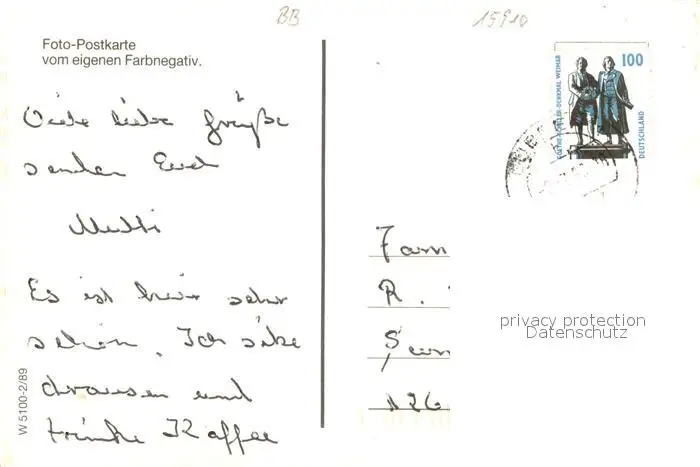 BB
15910
Foto-Postkarte
vom eigenen Farbnegativ.
Viele liebe Grüße
senden Euch
Mutti
Es ist hier sehr
schön. Ich sitze
drausen und
trinke Kaffee
W 5100-2/89
100
GOETHE-SCHILLER-DENKMAL WEIMAR
DEUTSCHLAND
Fam
R.
126
privacy protection
Datenschutz